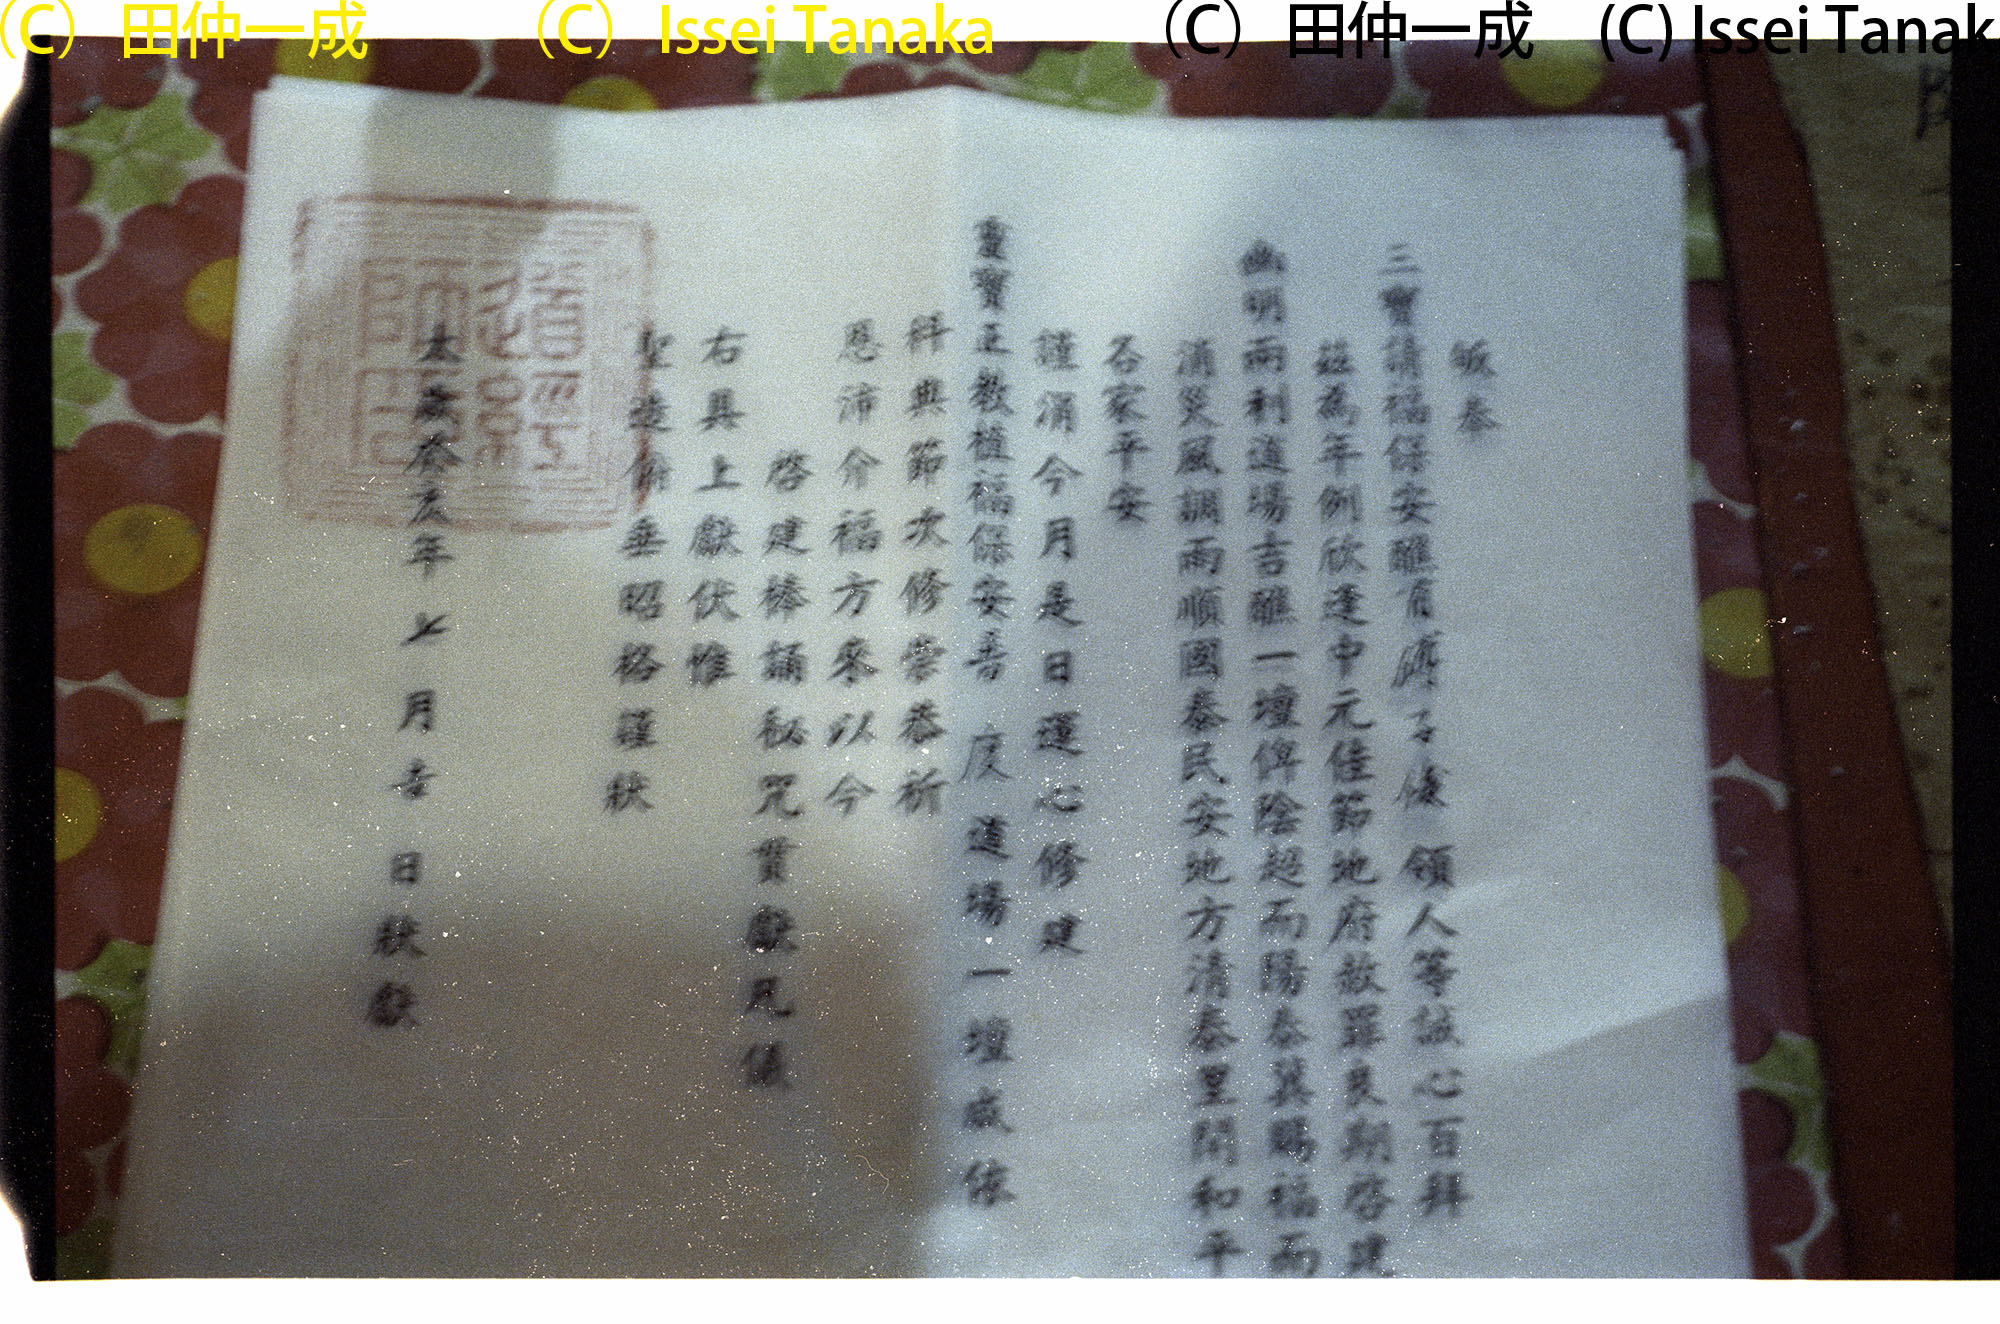 (C) 田仲一成 (C) Issei Tanaka (C) 田仲一成 (C) Issei Tanak
皈奉
三寶請福保安醮有 領人等誠心百拜
茲為年例欣逢中元佳節地府赦罪良期啓建
幽明兩利道場吉醮一壇俾陰超而陽泰冀賜福而
消災風調雨順國泰民安地方清泰里閭和平
各家平安
謹涓今月是日運心修建
靈寶正教植福保安普度道場一壇咸依
科典節次修崇恭祈
恩沛介福方來以今
啓建捧誦秘咒貫獻凡儀
右具上獻伏惟
聖造俯垂昭格謹狀
太歲癸亥年七月吉日狀獻
道經師寶